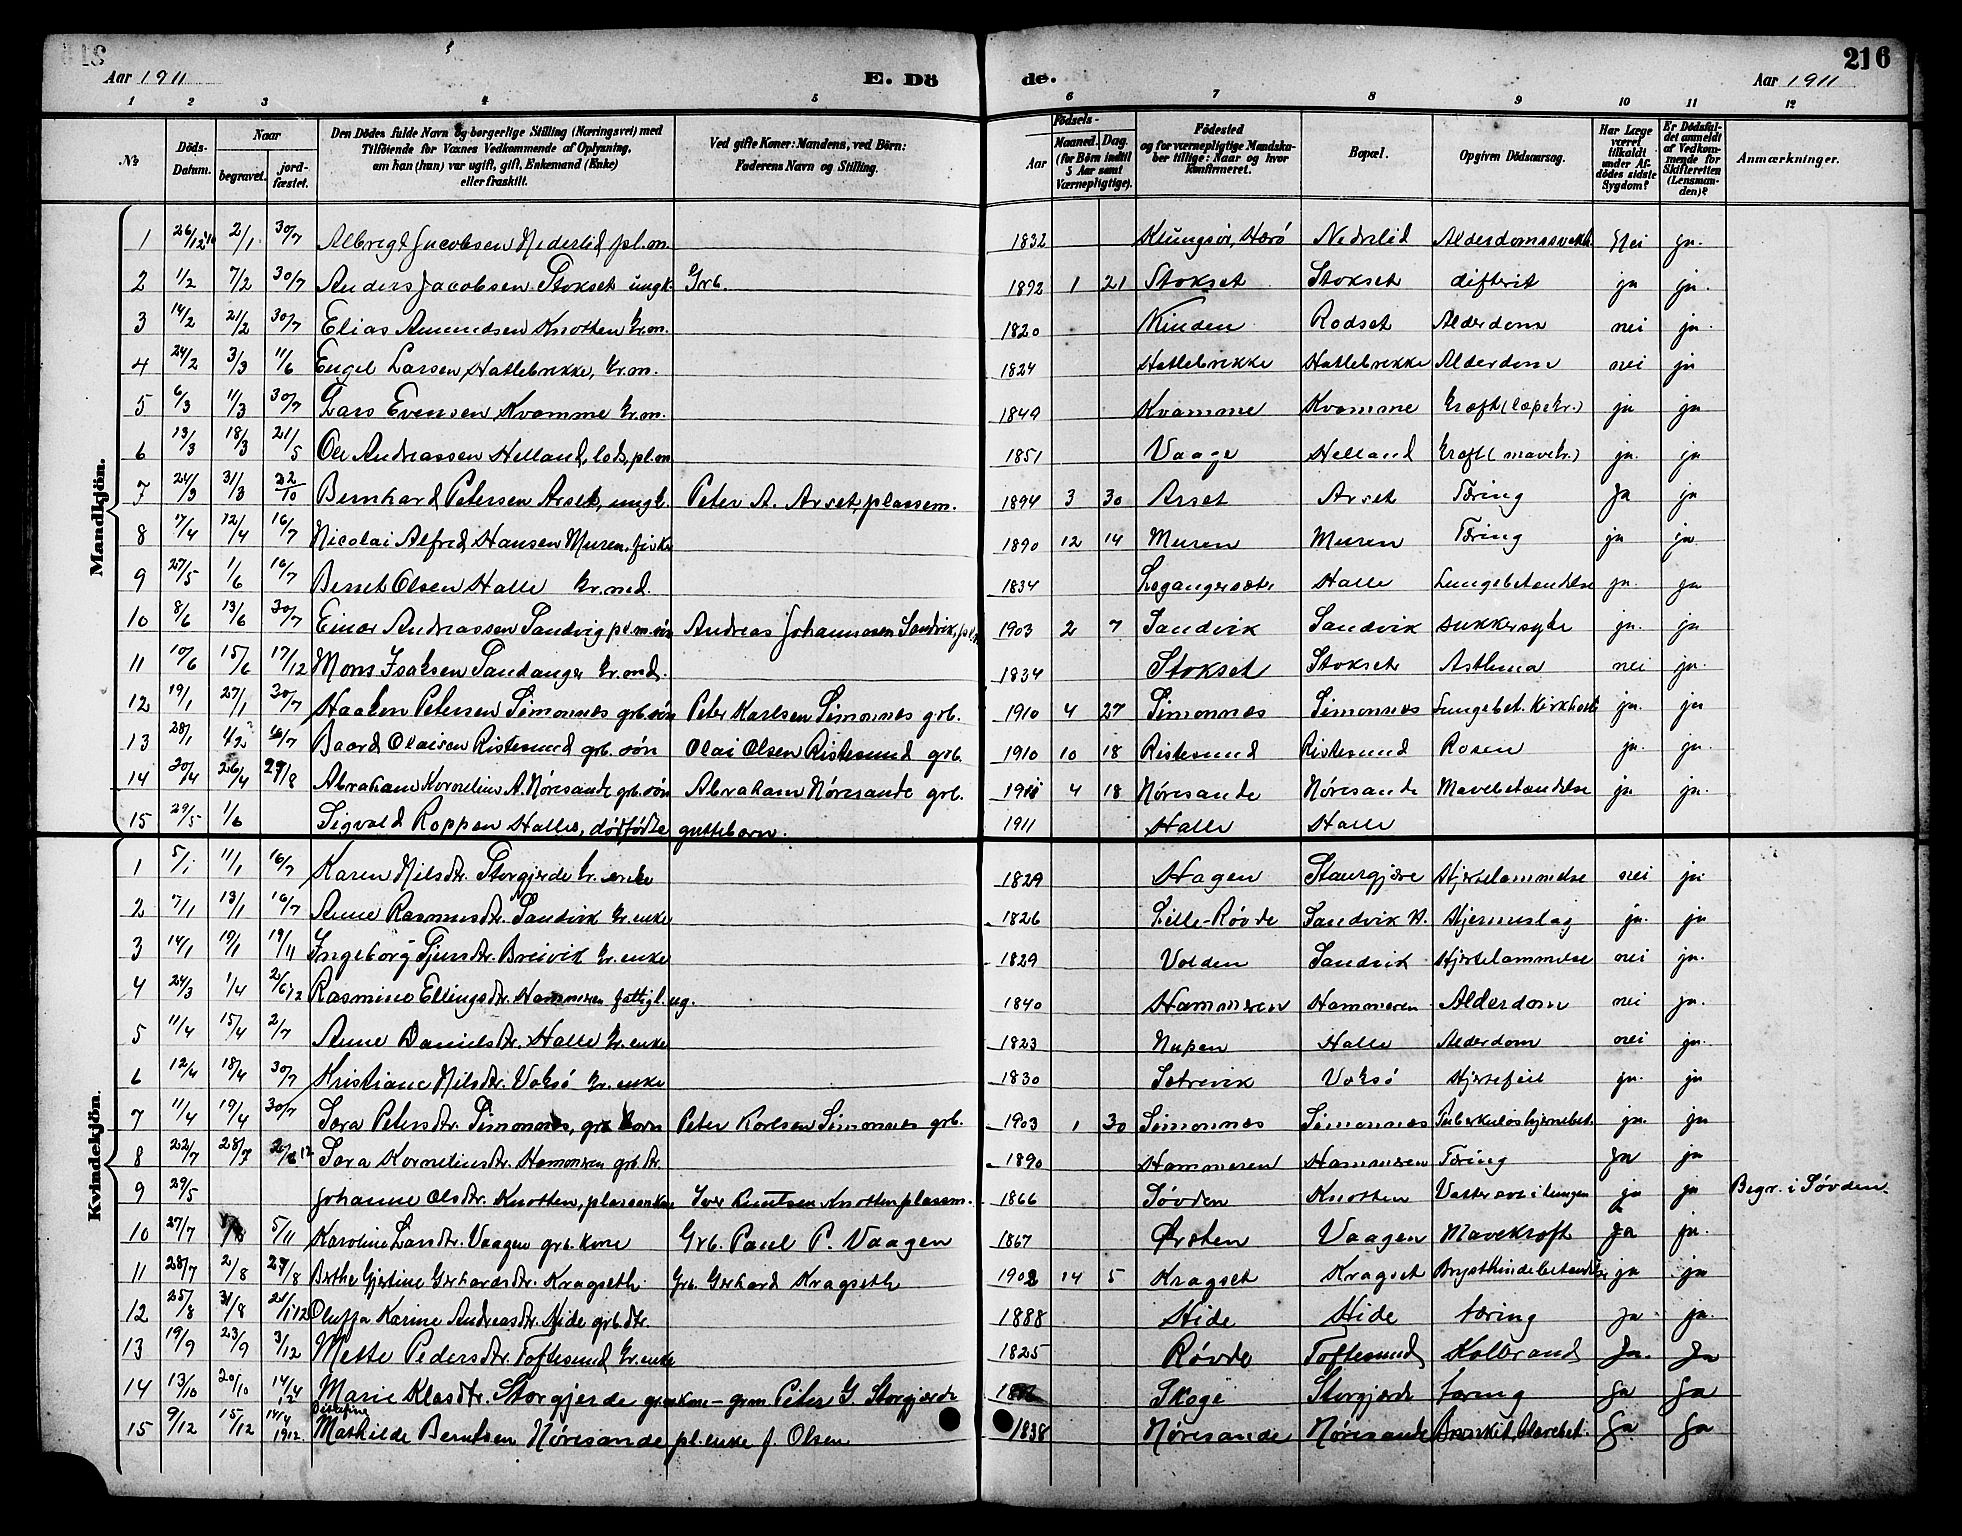 Aar 1911
E. Dö
de.
Aar 1911
216
1 2 3 4 5 6 7 8 9 10 11 12
No
Döds-Datum.
Naar
begravet.
jordfæstet.
Den Dödes fulde Navn og borgerlige Stilling (Næringsvei) med Tilföiende for Voxnes Vedkommende af Oplysning, om han (hun) var ugift, gift, Enkemand (Enke) eller fraskilt.
Ved gifte Koner: Mandens, ved Börn: Faderens Navn og Stilling.
Födsels-
Aar
Maaned. Dag.
(for Börn indtil 5 Aar samt Værnepligtige).
Födested og for værnepligtige Mandskaber tillige: Naar og hvor konfirmeret.
Bopæl.
Opgiven Dödsaarsag.
Har Læge været tilkaldt under Afdödes sidste Sygdom?
Er Dödsfaldet anmeldt af Vedkommende for Skifteretten (Lensmanden)?
Anmærkninger.
Mandkjön.
1 26/12 10 2/1 30/7 Albregt Jacobsen Nederlid pl.m. 1832 Klungsör, Herö Nedrelid Alderdomssvækk. Nei ja.
2 1/2 7/2 30/7 Anders Jacobsen Stokset ungk. Grb. 1892 1 21 Stokset Stokset difterit ja ja.
3 14/2 21/2 30/7 Elias Amundsen Knotten kr.m. 1820 Kinden Rodset Alderdom nei ja.
4 24/2 3/3 11/6 Engel Larsen Hatlebrekke, kr.m. 1824 Hatlebrekke Hatlebrekke Alderdom nei ja
5 6/3 11/3 30/7 Lars Evensen Kvamme kr.m. 1849 Kvamme Kvamme kræft (læpekr.) ja ja
6 13/3 18/3 21/5 Ole Andreassen Helland, lods, pl.m 1851 Vaage Helland kræft (mavekr.) ja. ja
7 24/3 31/3 22/10 Bernhard Petersen Arset, ungk. Peter A. Arset, plassem. 1894 3 30 Arset Arset Tæring Ja ja
8 7/4 12/4 16/7 Nicolai Alfred Hansen Muren, fiske 1890 12 14 Muren Muren Tæring ja ja
9 27/5 1/6 16/7 Bernt Olsen Halle kr.md. 1834 Halle Lungebetændelse ja. ja
10 8/6 13/6 30/7 Einar Andreassen Sandvig pl.m.sön Andreas Johannesen Sandvik, pl.m 1903 2 7 Sandvik Sandvik sukkersyke ja. ja
11 10/6 15/6 17/12 Mons Isaksen Sandanger kr.md. 1834 Stokset Stokset Asthma nei ja.
12 19/1 27/1 30/7 Haakon Petersen Simonnes grb.sön Peter Karlsen Simonnes grb. 1910 4 27 Simonnes Simonnes Lungebet. Kikhoste ja. ja
13 28/1 4/2 16/7 Baard Olaisen Ristesund grb. sön Olai Olsen Ristesund grb. 1910 10 18 Ristesund Ristesund Rosen ja. ja.
14 20/4 26/4 27/8 Abraham Kornelius A. Nöresande grb.sön Abraham Nöresande grb. 1911 4 18 Nöresande Nöresande Mavebetændelse ja ja.
15 29/5 1/6 Sigvald Roppen Halles, dödfödte guttebarn. 1911 Halle Halle
Kvindekjön.
1 5/1 11/1 16/7 Karen Nilsdtr. Storgjerde kr. enke 1829 Hagen Staurgjære Hjertelammelse nei ja
2 7/1 13/1 16/7 Anne Rasmusdtr. Sandvik kr.enke 1826 Lille-Røvde Sandvik N. Hjerneslag ja. ja
3 14/1 19/1 19/11 Ingeborg Breivik kr.enke 1829 Volden Sandvik Hjertelammelse nei ja.
4 24/3 1/4 2/6 12 Rasmine Ellingsdtr. Hammeren fattigl. ug. 1840 Hammeren Hammeren Alderdom nei ja.
5 11/4 15/4 2/7 Anne Danielsdtr. Halle kr.enke 1823 Nupen Halle Alderdom nei ja.
6 12/4 18/4 30/7 Kristiane Nilsdtr. Voksö kr.enke 1830 Sætrevik Voksö Hjertefeil ja. ja
7 11/4 19/4 30/7 Sara Petersdtr. Simonnes, grb barn Peter Karlsen Simonnes grb. 1903 1 30 Simonnes Simonnes Tuberkuloshjernebet. ja. ja
8 22/7 28/7 12 Sara Korneliusdtr. Hammeren grb.dtr. 1890 Hammeren Hammeren Tæring Ja ja
9 29/5 Johanne Olsdtr. Knotten, plassenkone Iver Knutsen Knotten plassem. 1866 Søvden Knotten Vattersot i lungen ja ja Begr. i Søvden.
10 27/7 5/11 Karoline Larsdtr. Vaagen grb.kone Grb. Paul P. Vaagen 1867 Ørsten Vaagen Mavekræft Ja ja.
11 28/7 2/8 27/8 Berthe Gjertine Gerhardsdtr. Kragseth Grb. Gerhard Kragseth 1902 14 5 Kragset Kragset Brysthindebetændelse ja ja
12 25/8 31/8 21/1 12 Oluffa Karine Andreasdtr. Hide grb.dtr. 1888 Hide Hide tæring ja ja.
13 19/9 23/9 3/12 Mette Pedersdtr. Toftesund kr.enke 1825 Røvde Toftesund Kolbrand Ja. Ja
14 13/10 20/10 14/4 12 Marie Klasdtr. Storgjerde grm.kone – grm. Peter G. Storgjerde Skoge Storgjerde tæring Ja Ja
15 9/12 15/12 14/4 1912 Mathilde Serafine Berntsen Nöresande pl.enke f. Olsen 1838 Nöresande Nöresande Bronkit, Blærebet. Ja Ja